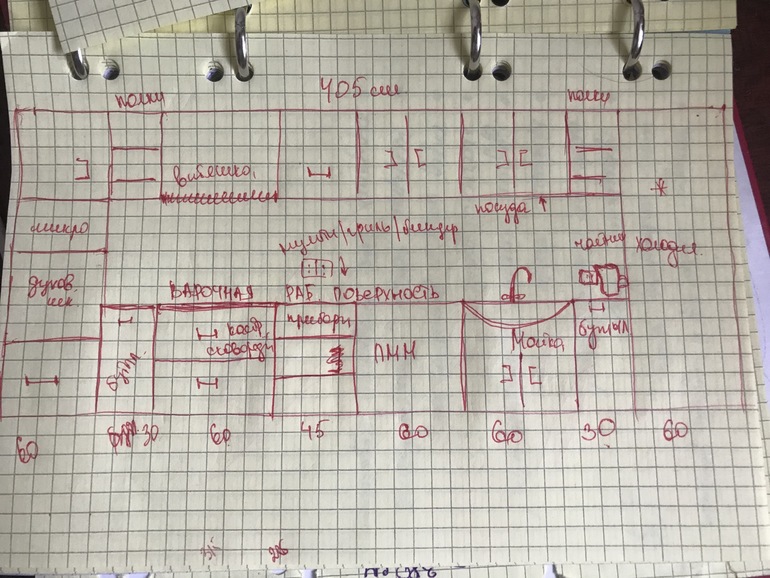 405 см
полки
полки
вытяжка
посуда ↑
микро
мульти/гриль/блендер
чайник
холодил.
духов.
шк
ВАРОЧНАЯ
РАБ. ПОВЕРХНОСТЬ
приборы
кастр.
сковороды
ПММ
Мойка
бутыл
бутыл.
60
30
60
45
60
60
30
60